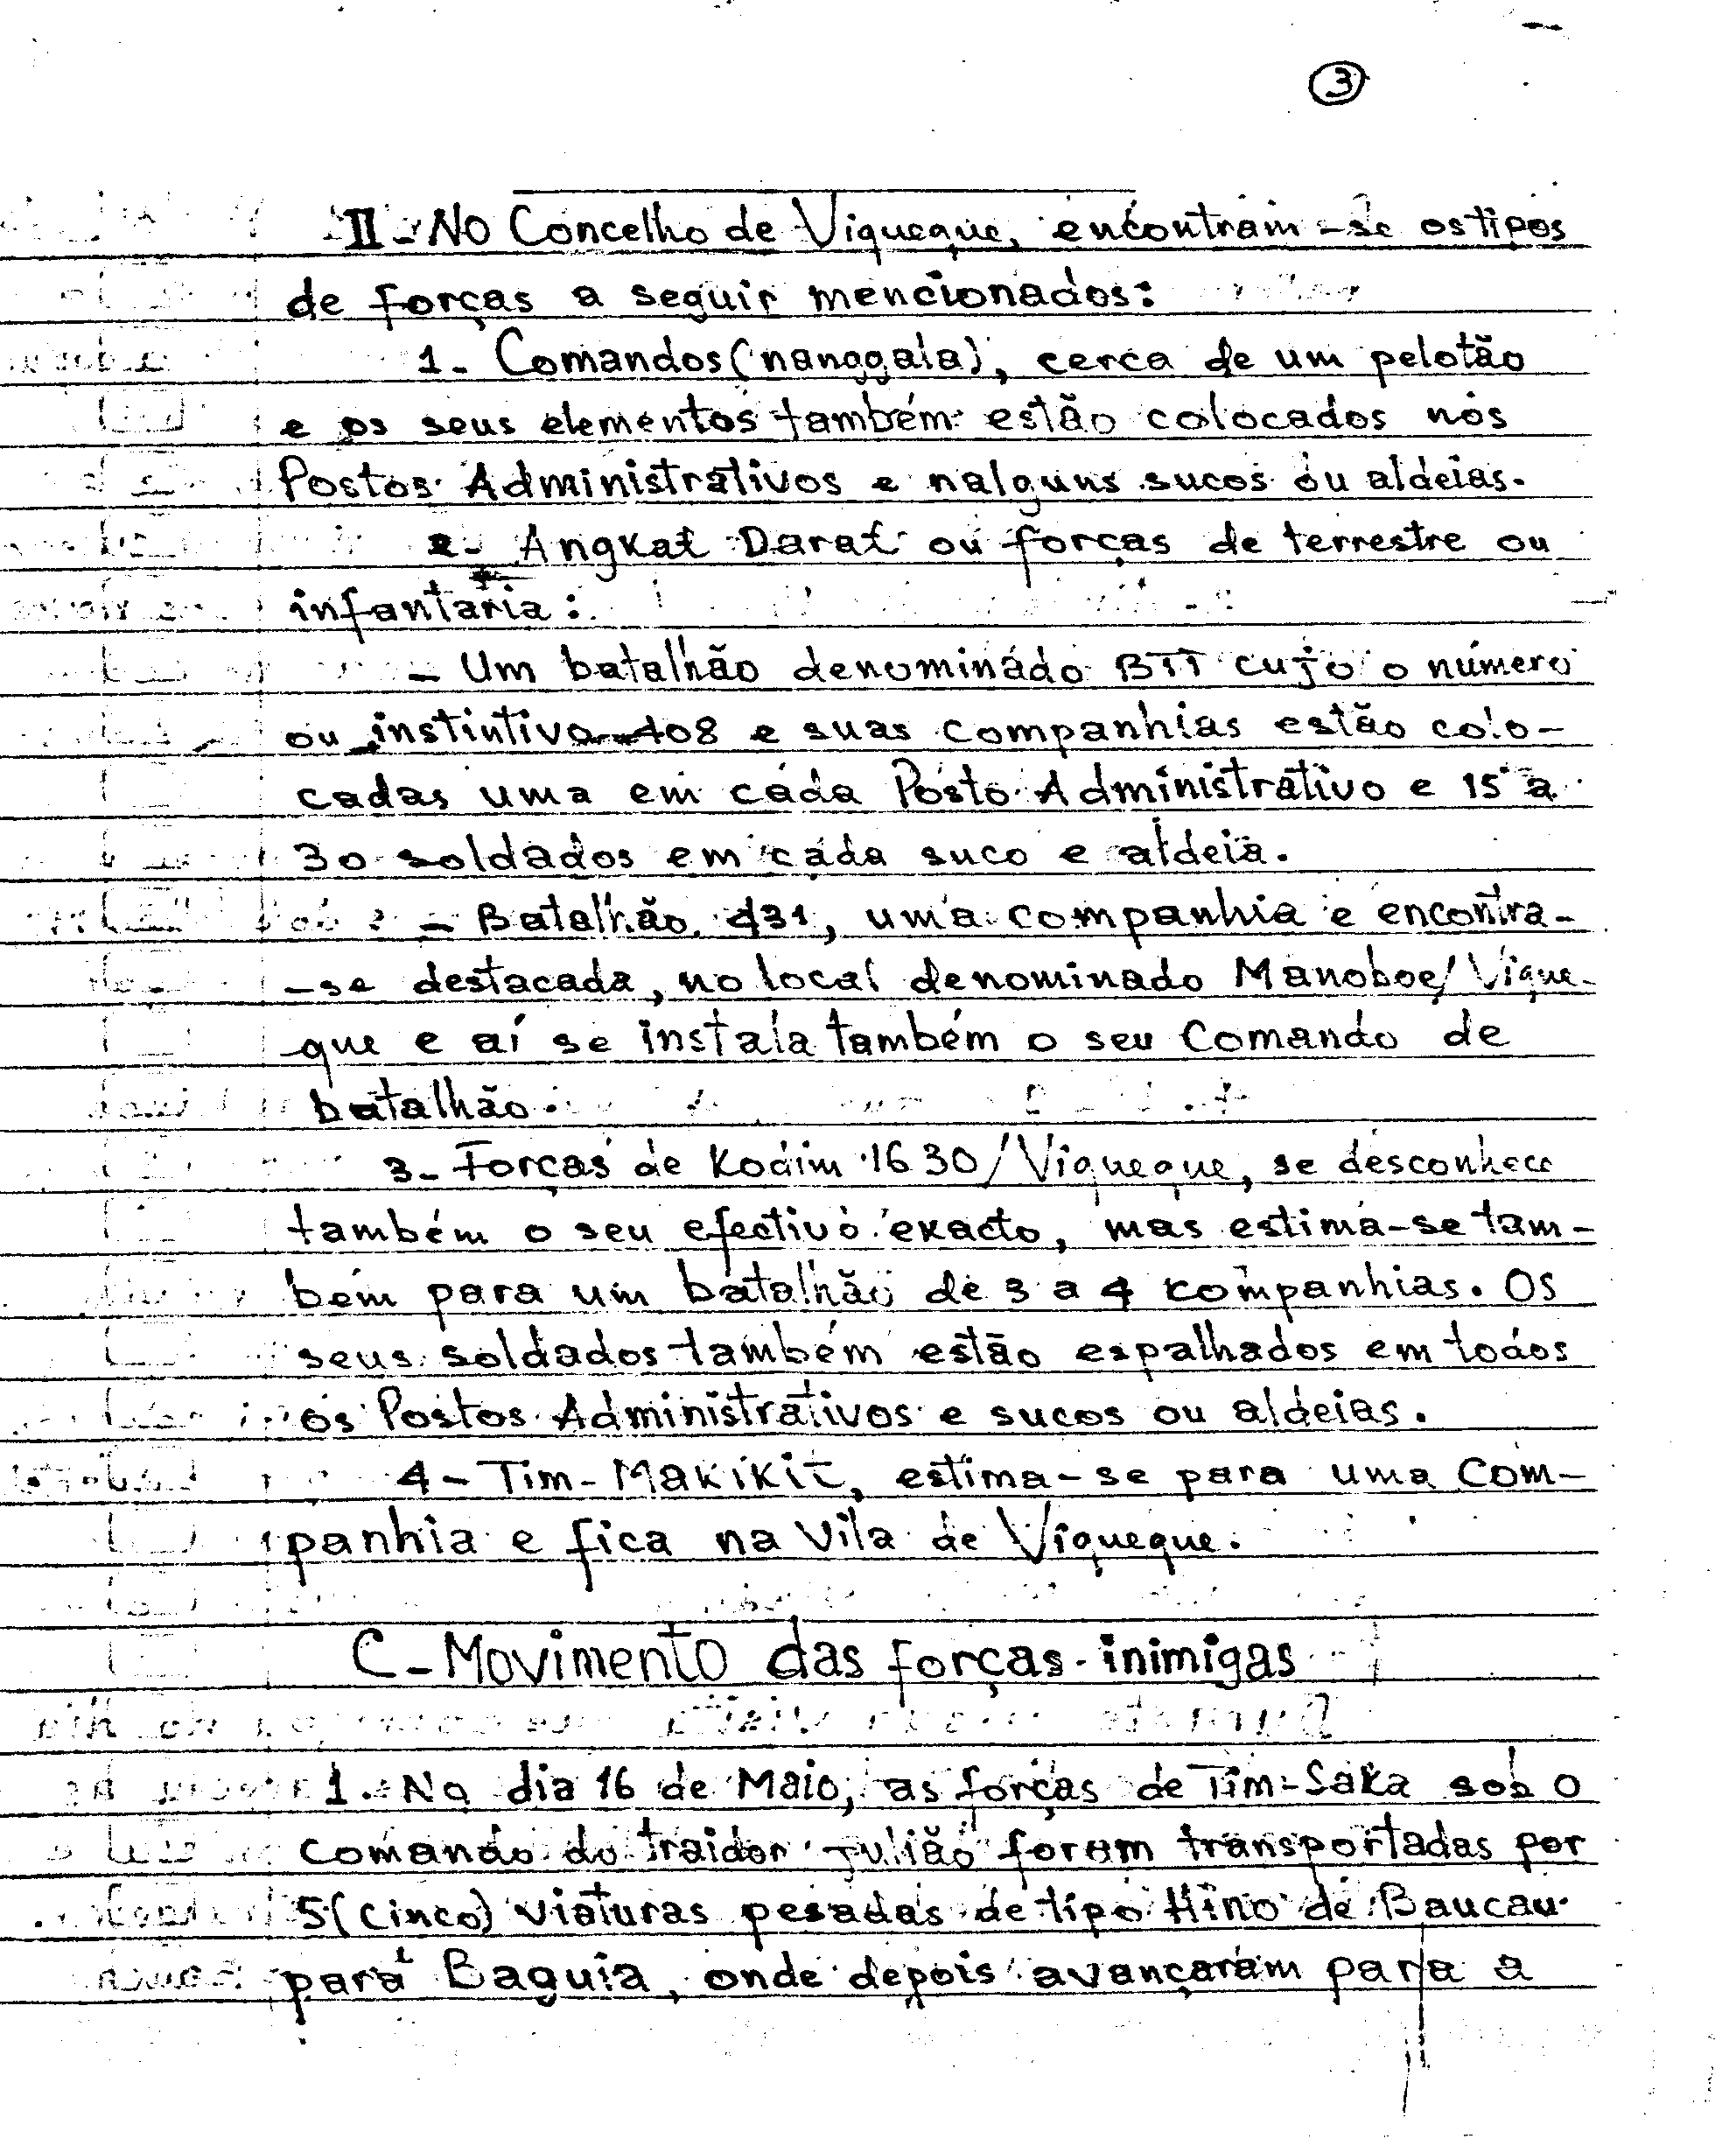 3
II - No Concelho de Viqueque, encontram-se os tipos
de forças a seguir mencionados:
1- Comandos (nanggala), cerca de um pelotão
e os seus elementos também estão colocados nos
Postos Administrativos e nalguns sucos ou aldeias.
2- Angkat Darat ou forças de terrestre ou
infantaria:
- Um batalhão denominado BTT cujo o número
ou instintivo 408 e suas companhias estão colo-
cadas uma em cada Posto Administrativo e 15 a
30 soldados em cada suco e aldeia.
- Batalhão 431, uma companhia e encontra-
-se destacada, no local denominado Manoboe/Vique-
que e aí se instala também o seu Comando de
batalhão.
3- Forças de Kodim 1630/Viqueque, se desconhece
também o seu efectivo exacto, mas estima-se tam-
bém para um batalhão de 3 a 4 companhias. Os
seus soldados também estão espalhados em todos
os Postos Administrativos e sucos ou aldeias.
4- Tim-Makikit, estima-se para uma Com-
panhia e fica na Vila de Viqueque.
C- Movimento das forças inimigas
1. No dia 16 de Maio, as forças de Tim-Saka sob o
comando do traidor Julião foram transportadas por
5 (cinco) viaturas pesadas de tipo Hino de Baucau
para Baguia, onde depois avançaram para a